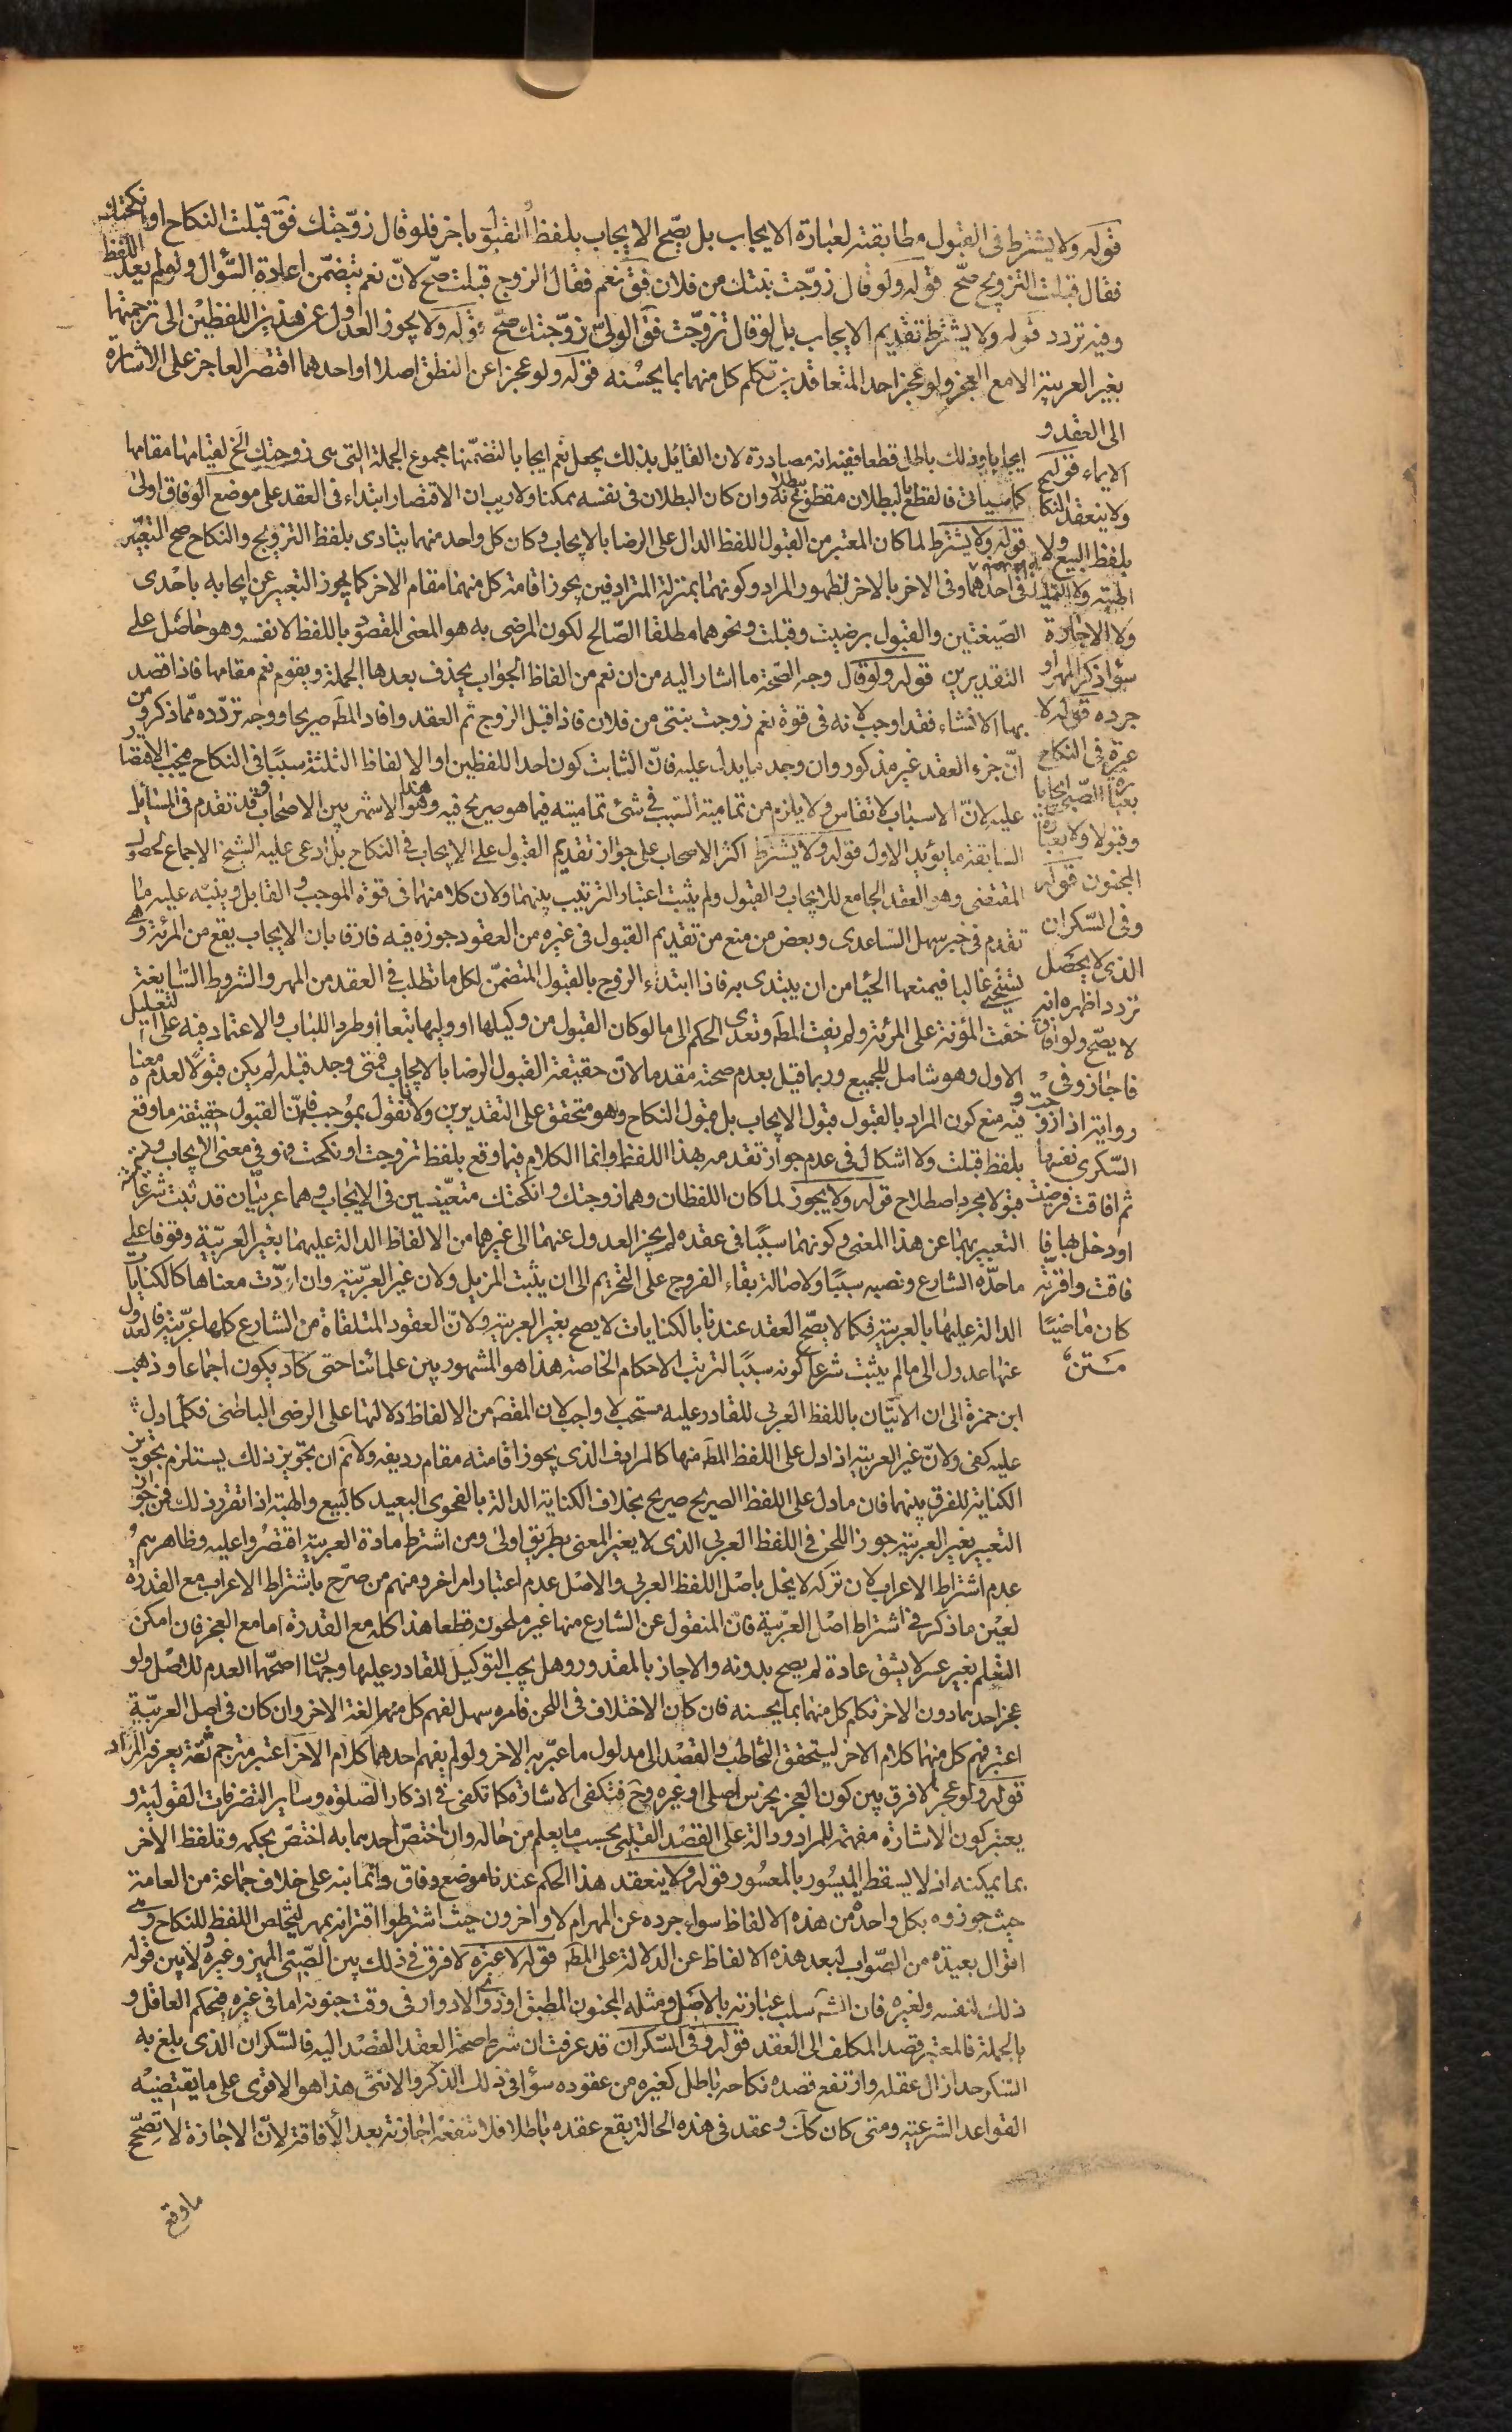 قوله ولا يشترط فى القبول مطابقته لعبارة الايجاب بل يصح الايجاب بلفظ والقبول باخر فلو قال زوّجتك فق قبلت النكاح او انكحتك
فقال قبلت التزويج صحّ قوله ولو قال زوّجت بنتك من فلان فق نعم فقال الزوج قبلت صحّ لانّ نعم يتضمّن اعادة السّؤال ولو لم يعد اللفظ
وفيه تردد قوله ولا يشترط تقديم الايجاب بل لو قال تزوّجت فق الولىّ زوّجتك صحّ قوله ولا يجوز العدول عن هذين اللفظين الى ترجمتها
بغير العربية الا مع العجز ولو عجز احد المتعاقدين تكلم كل منهما بما يحسنه قوله ولو عجزا عن النطق اصلا او احدهما اقتصر العاجز على الاشارة
الى العقد و
الايماء قوله
ولا ينعقد النكا
بلفظ البيع ولا
الهبة ولا التمليك
ولا الاجارة
سواء ذكر المهر او
جرده قوله لا
عبرة فى النكاح
بعبارة الصّبىّ ايجابا
وقبولا ولا بعبارة
المجنون قوله
وفى السّكران
الذى لا يحصّل
تردد اظهره انه
لا يصّح ولو افاق
فاجاز وفى
رواية اذا زوجت
السّكرى نفسها
ثم افاقت فرضيت
او دخل بها فا
فاقت واقرته
كان ماضيًا
متن
ايجابا وذلك باطل قطعا ففيه انه مصادرة لان القائل بذلك يجعل نعم ايجابا لتضمّنها مجموع الجملة التى هى زوجتك الخ لقيامها مقامها
كما سيأتى فالقطع بالبطلان مقطوع ببطلانه وان كان البطلان فى نفسه ممكنا ولا ريب ان الاقتصار ابتداء فى العقد على موضع الوفاق اولى
قوله ولا يشترط لما كان المعتبر من القبول اللفظ الدال على الرضا بالايجاب وكان كل واحد منهما يتادى بلفظ التزويج والنكاح صح التعبّير
فى احدهما وفى الاخر بالاخر لظهور المراد وكونهما بمنزلة المترادفين يجوز اقامة كل منهما مقام الاخر كما يجوز التعبير عن ايجابه باحدى
الصّيغتين والقبول برضيت وقبلت ونحوهما مطلقا الصّالح لكون المرضى به هو المعنى المقصود باللفظ لا نفسه وهو حاصل على
التقديرين قوله ولو قال وجه الصّحة ما اشار اليه من ان نعم من الفاظ الجواب يحذف بعدها الجملة ويقوم نعم مقامها فاذا قصد
بها الانشاء فقد اوجب لانه فى قوة نعم زوجت بنتى من فلان فاذا قبل الزوج ثم العقد وافاد المطه صريحا ووجه تردّده ممّا ذكر ومن
انّ جزء العقد غير مذكور وان وجد ما يدل عليه فانّ الثابت كون احد اللفظين او الالفاظ الثلثة سببًا فى النكاح فيجب الاقتصار
عليه لانّ الاسباب لا تقاس ولا يلزم من تمامية السّبب فى شئ تماميته فيما هو صريح فيه وهذا هو الاشهر بين الاصحاب وقد تقدم فى المسائل
السّابقة ما يؤيد الاول قوله ولا يشترط اكثر الاصحاب على جواز تقديم القبول على الايجاب فى النكاح بل ادعى عليه الشيخ الاجماع لحصول
المقتضى وهو العقد الجامع للايجاب والقبول ولم يثبت اعتبار الترتيب بينهما ولان كلا منهما فى قوة الموجب والقابل وينبّه عليه ما
تقدم فى خبر سهل السّاعدى وبعض من منع من تقديم القبول فى غيره من العقود جوزه فيه فارقا بان الايجاب يقع من المرئة وهى
تستحيى غالبا فيمنعها الحيا من ان يبتدى به فاذا ابتدء الزوج بالقبول المتضمّن لكل ما تطلب فى العقد من المهر والشروط السّايغة
خفت المؤنة على المرئة ولم يفت المطه وتعدى الحكم الى ما لو كان القبول من وكيلها او وليها تبعا او طردا للباب والاعتماد فيه على التعليل
الاول وهو شامل للجميع وربما قيل بعدم صحته مقدما لانّ حقيقة القبول الرضا بالايجاب فمتى وجد قبله لم يكن قبولًا لعدم معناه
وفيه منع كون المراد بالقبول قبول الايجاب بل قبول النكاح وهو متحقق على التقديرين ولا نقول بموجب فانّ القبول حقيقة ما وقع
بلفظ قبلت ولا اشكال فى عدم جواز تقدمه بهذا اللفظ وانما الكلام فيما وقع بلفظ تزوجت او نكحت وهو فى معنى الايجاب وتسميته
قبولا مجرد اصطلاح قوله ولا يجوز لما كان اللفظان وهما زوجتك وانكحتك متعيّنين فى الايجاب وهما عربيّان قد ثبت شرعا
التعبير بهما عن هذا المعنى وكونهما سببًا فى عقده لم يجز العدول عنهما الى غيرهما من الالفاظ الدالة عليهما بغير العربيّة وقوفا على
ما حدّه الشارع ونصبه سببًا ولاصالة بقاء الفروج على التحريم الى ان يثبت المزيل ولان غير العربّية وان ادّت معناها كالكنايات
الدالة عليها بالعربية فكما لا يصّح العقد عندنا بالكنايات لا يصح بغير العربية ولانّ العقود المتلقاة من الشارع كلها عربّية فالعدول
عنها عدول الى ما لم يثبت شرعاً كونه سببًا لترتب الاحكام الخاصة هذا هو المشهور بين علمائنا حتى كاد يكون اجماعاً وذهب
ابن حمزة الى ان الاتيّان باللفظ العربى للقادر عليه مستحب لا واجب لان المقصه من الالفاظ دلالتها على الرضى الباطنى فكلما دل
عليه كفى ولانّ غير العربية اذا دل على اللفظ المطه منها كالمرادف الذى يجوز اقامته مقام رديفه ولانم ان تجويز ذلك يستلزم تجويز
الكناية للفرق بينهما فان ما دل على اللفظ الصريح صريح بخلاف الكناية الدالة بالفحوى البعيد كالبيع والهبة اذا تقرر ذلك فمن جوّز
التعبير بغير العربية جوز اللحن فى اللفظ العربى الذى لا يغير المعنى بطريق اولى ومن اشترط مادة العربية اقتصرُوا عليه وظاهرهم
عدم اشتراط الاعراب لان تركه لا يخل باصْل اللفظ العربى والاصْل عدم اعتبار امر اخر ومنهم من صرّح باشتراط الاعراب مع القدرة
لعيْن ما ذكر فى اشتراط اصْل العرّبية فانّ المنقول عن الشارع منها غير ملحون قطعا هذا كله مع القدرة اما مع العجز فان امكن
التعلم بغير عسر لا يشق عادة لم يصح بدونه والا جاز بالمقدور وهل يجب التوكيل للقادر عليها وجهان اصحّهما العدم للاصْل ولو
عجز احدهما دون الاخر تكلم كل منهما بما يحسنه فان كان الاختلاف فى اللحن فامره سهل لفهم كل منهما لغة الاخر وان كان فى اصل العربيّة
اعتبر فهم كل منهما كلام الاخر ليتحقق التخاطب والقصْد الى مدلول ما عبّر به الاخر ولو لم يفهم احدهما كلام الاخر اعتبر مترجم ثقة يعرفه المراد
قوله ولو عجز لا فرق بين كون العجز بخرس اصلى او غيره وح فتكفى الاشارة كما تكفى فى اذكار الصّلوة وساير التصّرفات القوليّة و
يعتبر كون الاشارة مفهمة للمراد ودالة على القصْد القلبى بحسب ما يعلم من حاله وان اختصّ احدهما به اختصّ بحكمه وتلفظ الاخر
بما يمكنه اذ لا يسقط الميسُور بالمعسُور قوله ولا ينعقد هذا الحكم عندنا موضع وفاق وانما نبه على خلاف جماعة من العامة
حيث جوزوه بكل واحدة من هذه الالفاظ سواء جرده عن المهر ام لا واخرون حيث اشترطوا اقترانه بمهر ليتخلص اللفظ للنكاح وهى
اقوال بعيدة من الصّواب لبعد هذه الالفاظ عن الدلالة على المطه قوله لا عبْره لا فرق فى ذلك بين الصّبىّ المميز وغيره ولا بين قوله
ذلك لنفسه ولغيره فان الشه سلب عبارته بالاصْل ومثله المجنون المطبق او ذو الادوار فى وقت جنونه اما فى غيره فبحكم العاقل و
بالجملة فالمعتبر قصد المكلف الى العقد قوله وفى السّكران قد عرفت ان شرط صحة العقد القصْد اليه فالسّكران الذى بلغ به
السّكر حدا زال عقله وارتفع قصده نكاحه باطل كغيره من عقوده سواء فى ذلك الذكر والانثى هذا هو الاقوى على ما يقتضيْه
القواعد الشرعية ومتى كان كك وعقد فى هذه الحالة يقع عقده باطلا فلا تنفعْه اجازته بعد الأفاقة لانّ الاجازة لا تصحّح
ما وقع